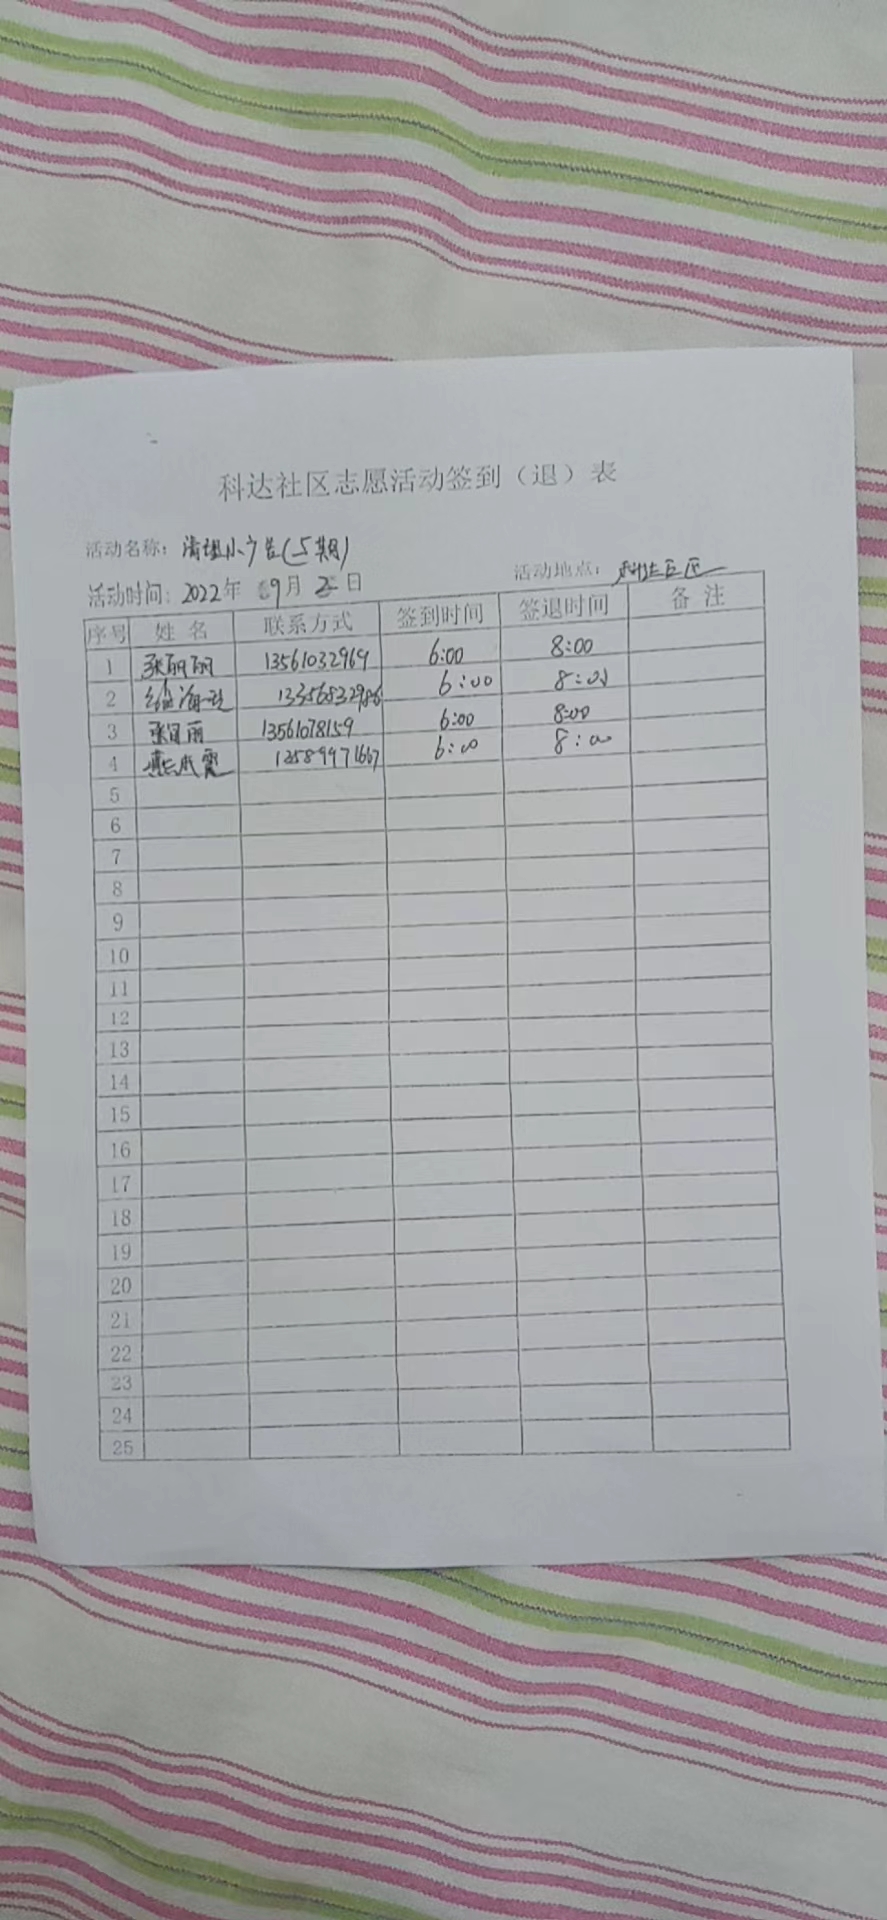 科达社区志愿活动签到（退）表
活动名称：清理小广告(5期)
活动时间：2022年 09月 2日 活动地点：科达社区
序号 姓名 联系方式 签到时间 签退时间 备注
1 张丽丽 13561032969 6:00 8:00
2 13356832986 6:00 8:00
3 丽 13561078159 6:00 8:00
4 13589971667 6:00 8:00
5
6
7
8
9
10
11
12
13
14
15
16
17
18
19
20
21
22
23
24
25